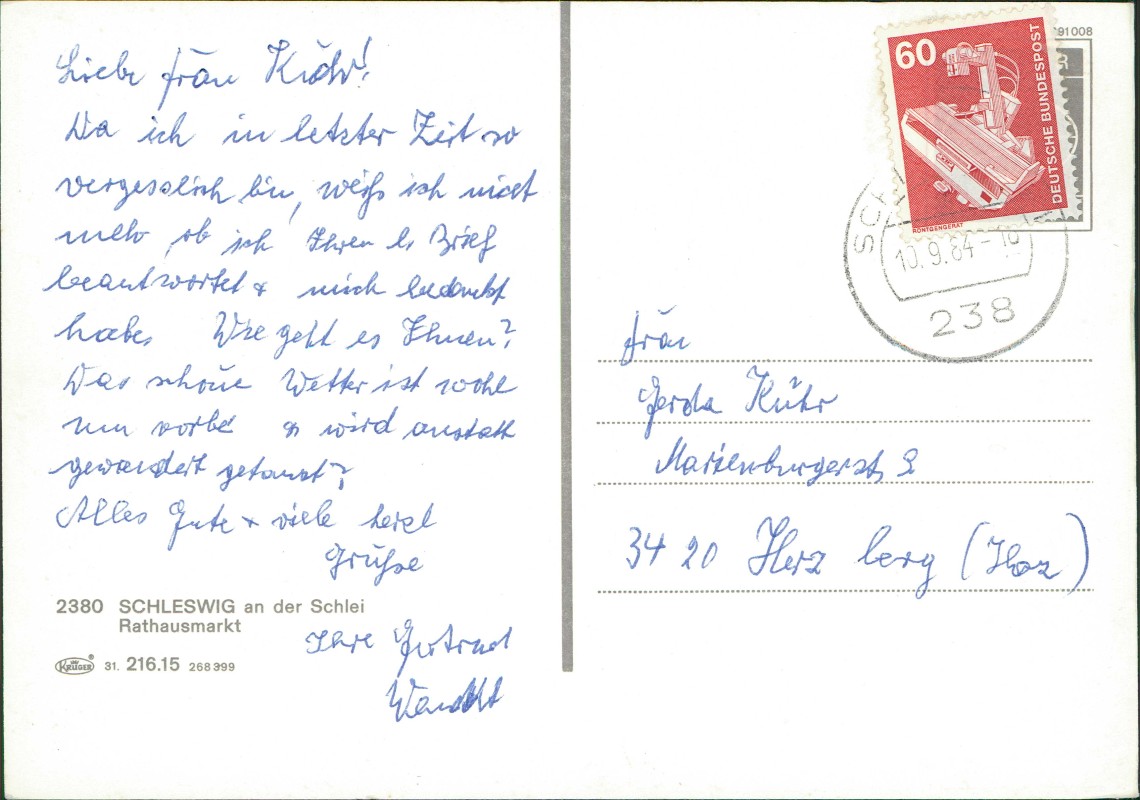 Liebe Frau Kühr!
Da ich in letzter Zeit so
vergesslich bin, weiß ich nicht
mehr, ob ich Ihren lb. Brief
beantwortet + mich bedankt
habe. Wie geht es Ihnen?
Das schöne Wetter ist wohl
nun vorbei es wird anstatt
gewandert getanzt?
Alles Gute + viele herzl
Grüße
Ihre Gertrud
2380 SCHLESWIG an der Schlei
Rathausmarkt
KRÜGER 31. 216.15 268 399
60
DEUTSCHE BUNDESPOST
RÖNTGENGERÄT
91008
SCH
10.9.84-18
238
Frau
Gerda Kühr
Marienburgerstr. 2
3420 Herzberg (Harz)